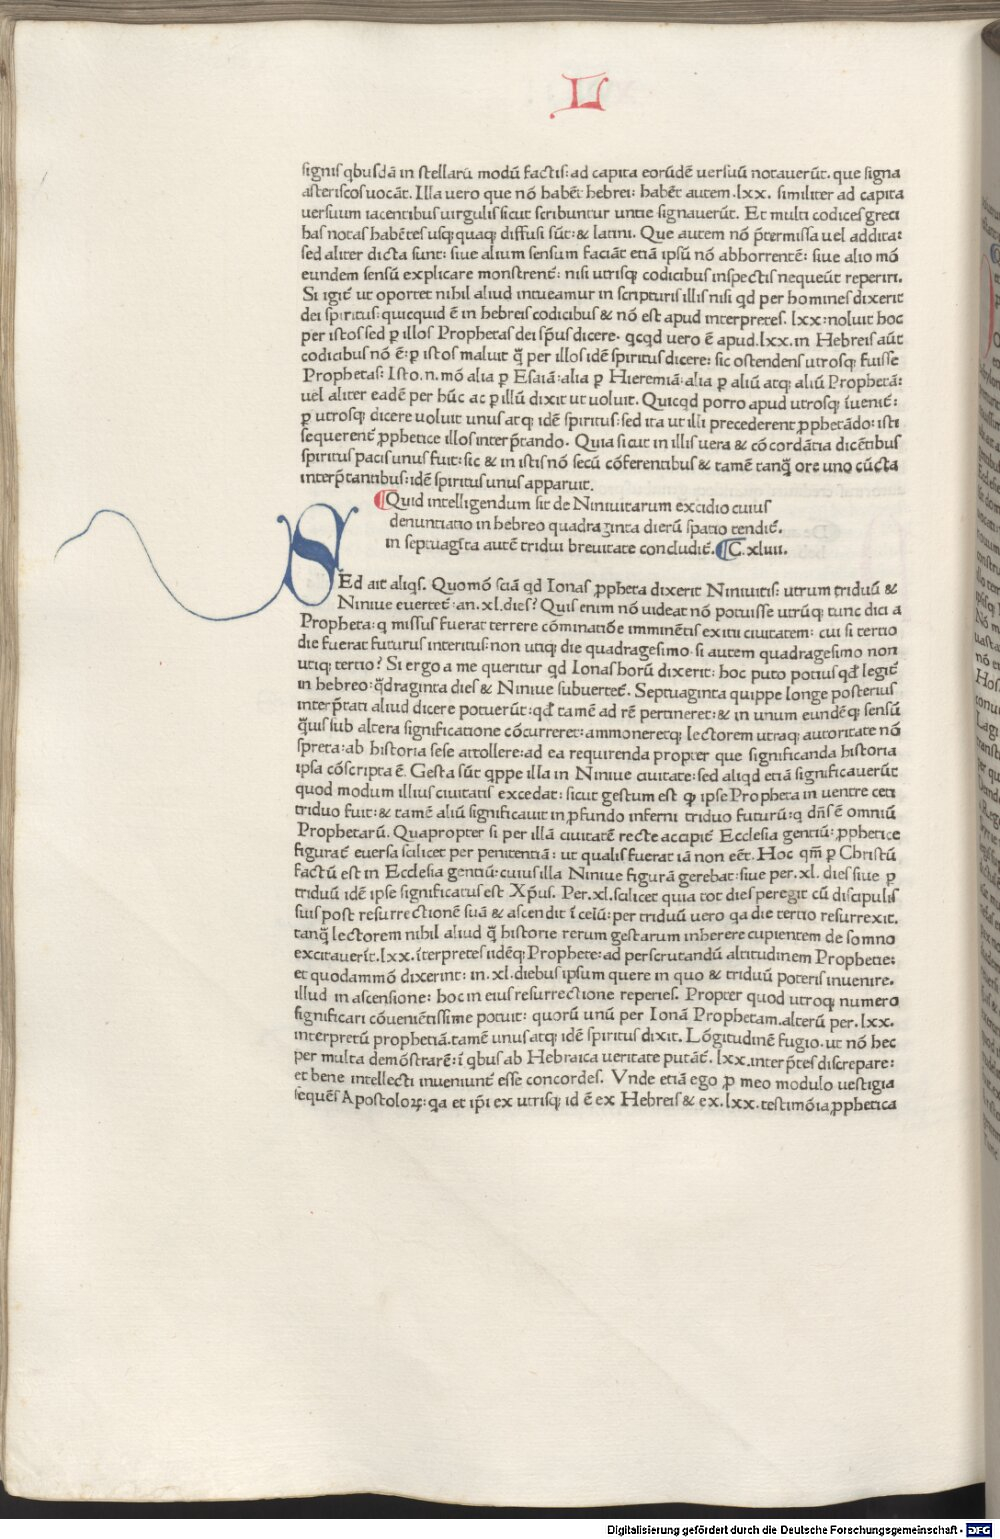 L
signis qbusdā in stellarū modū factis: ad capita eorūdē uersuū notauerūt. que signa
asteriscos uocāt. Illa uero que nō habēt hebrei: habēt autem .lxx. similiter ad capita
uersuum iacentibus uirgulis sicut scribuntur untie signauerūt. Et multi codices greci
has notas habētes usq; quaq; diffusi sūt: & latini. Que autem nō p̄termissa uel addita:
sed aliter dicta sunt: siue alium sensum faciāt etiā ipsū nō abhorrentē: siue alio mō
eundem sensū explicare monstrent̄: nisi utrisq; codicibus inspectis nequeūt reperiri.
Si igit̄ ut oportet nihil aliud intueamur in scripturis illis nisi qd per homines dixerit
dei spiritus: quicquid ē in hebreis codicibus & nō est apud interpretes .lxx: noluit hoc
per istos sed ꝑ illos Prophetas dei sp̄us dicere. qcqd uero ē apud .lxx. in Hebreis aūt
codicibus nō ē: ꝑ istos maluit q̄ per illos idē spiritus dicere: sic ostendens utrosq; fuisse
Prophetas: Isto .n. mō alia ꝑ Esaiā: alia ꝑ Hieremiā: alia ꝑ aliū atq; aliū Prophetā:
uel aliter eadē per hūc ac ꝑ illū dixit ut uoluit. Quicqd porro apud utrosq; īuenit̄:
ꝑ utrosq; dicere uoluit unus atq; idē spiritus: sed ita ut illi precederent ꝓphetādo: isti
sequerent̄ ꝓphetice illos interp̄tando. Quia sicut in illis uera & cōcordātia dicētibus
spiritus pacis unus fuit: sic & in istis nō secū cōferentibus & tamē tanq̄ ore uno cūcta
interp̄tantibus: idē spiritus unus apparuit.
¶Quid intelligendum sit de Niniuitarum excidio cuius
denuntiatio in hebreo quadraginta dierū spatio tendit̄.
in septuagīta autē tridui breuitate concludit̄. ¶C. xliiii.
SEd ait aliqs. Quomō sciā qd Ionas ꝓpheta dixerit Niniuitis: utrum triduū &
Niniue euertet̄: an .xl. dies? Quis enim nō uideat nō potuisse utrūq; tunc dici a
Propheta: q missus fuerat terrere cōminatiōe imminētis exitii ciuitatem: cui si tertio
die fuerat futurus interitus: non utiq; die quadragesimo. si autem quadragesimo non
utiq; tertio? Si ergo a me queritur qd Ionas horū dixerit: hoc puto potius qd̄ legit̄
in hebreo: q̄draginta dies & Niniue subuertet̄. Septuaginta quippe longe posterius
interp̄tati aliud dicere potuerūt: qd̄ tamē ad rē pertineret: & in unum eundēq; sensū
q̄uis sub altera significatione cōcurreret: ammoneretq; lectorem utraq; autoritate nō
spreta: ab historia sese attollere: ad ea requirenda propter que significanda historia
ipsa cōscripta ē. Gesta sūt qppe illa in Niniue ciuitate: sed aliqd etiā significauerūt
quod modum illius ciuitatis excedat: sicut gestum est ꝙ ipse Propheta in uentre ceti
triduo fuit: & tamē aliū significauit in ꝓfundo inferni triduo futurū: q dn̄s ē omniū
Prophetarū. Quapropter si per illā ciuitatē recte accipit̄ Ecclesia gentiū: ꝓphetice
figurat̄ euersa scilicet per penitentiā: ut qualis fuerat iā non eēt. Hoc qm̄ ꝑ Christū
factū est in Ecclesia gentiū: cuius illa Niniue figurā gerebat: siue per .xl. dies siue ꝑ
triduū idē ipse significatus est Xp̄us. Per .xl. scilicet quia tot dies peregit cū discipulis
suis post resurrectionē suā & ascendit ī celū: per triduū uero qa die tertio resurrexit.
tanq̄ lectorem nihil aliud q̄ historie rerum gestarum inherere cupientem de somno
excitauerīt .lxx. īterpretes iidēq; Prophete: ad perscrutandū altitudinem Prophetie:
et quodammō dixerint: in .xl. diebus ipsum quere in quo & triduū poteris inuenire.
illud in ascensione: hoc in eius resurrectione reperies. Propter quod utroq; numero
significari cōueniētissime potuit: quorū unū per Ionā Prophetam. alterū per .lxx.
interpretū prophetiā. tamē unus atq; idē spiritus dixit. Lōgitudinē fugio. ut nō hec
per multa demōstrarē: ī qbus ab Hebraica ueritate putāt̄ .lxx. interp̄tes discrepare:
et bene intellecti inueniunt̄ esse concordes. Vnde etiā ego ꝓ meo modulo uestigia
sequēs Apostoloꝝ: qa et ip̄i ex utrisq; id ē ex Hebreis & ex .lxx. testimōia ꝓphetica
Digitalisierung gefördert durch die Deutsche Forschungsgemeinschaft - DFG